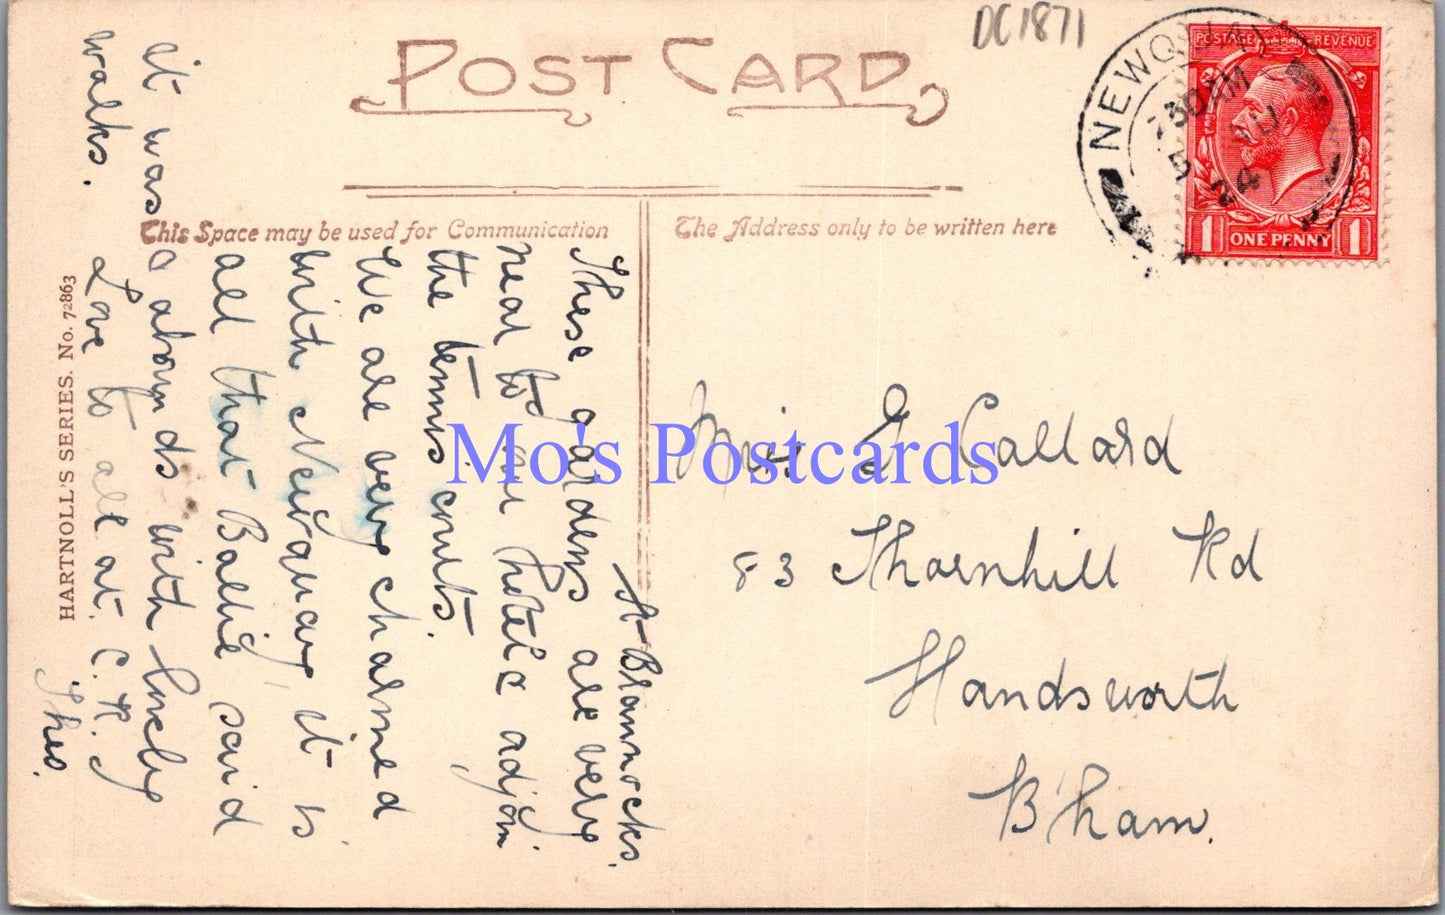 DC1871
POST CARD
NEWQUAY
730AM
5 AU
24
POSTAGE REVENUE
1 ONE PENNY 1
This Space may be used for Communication
The Address only to be written here
HARTNOLL'S SERIES. No. 72863
St Brannocks.
These gardens are very
near to our hotel & adjoin
the tennis courts.
We are very charmed
with Newquay, it is
all that Ballie said
it was & abounds with lovely
walks. Love to all at C. H.
Theo.
Miss G Callard
83 Thornhill Rd
Handsworth
B'ham.
Mo's Postcards